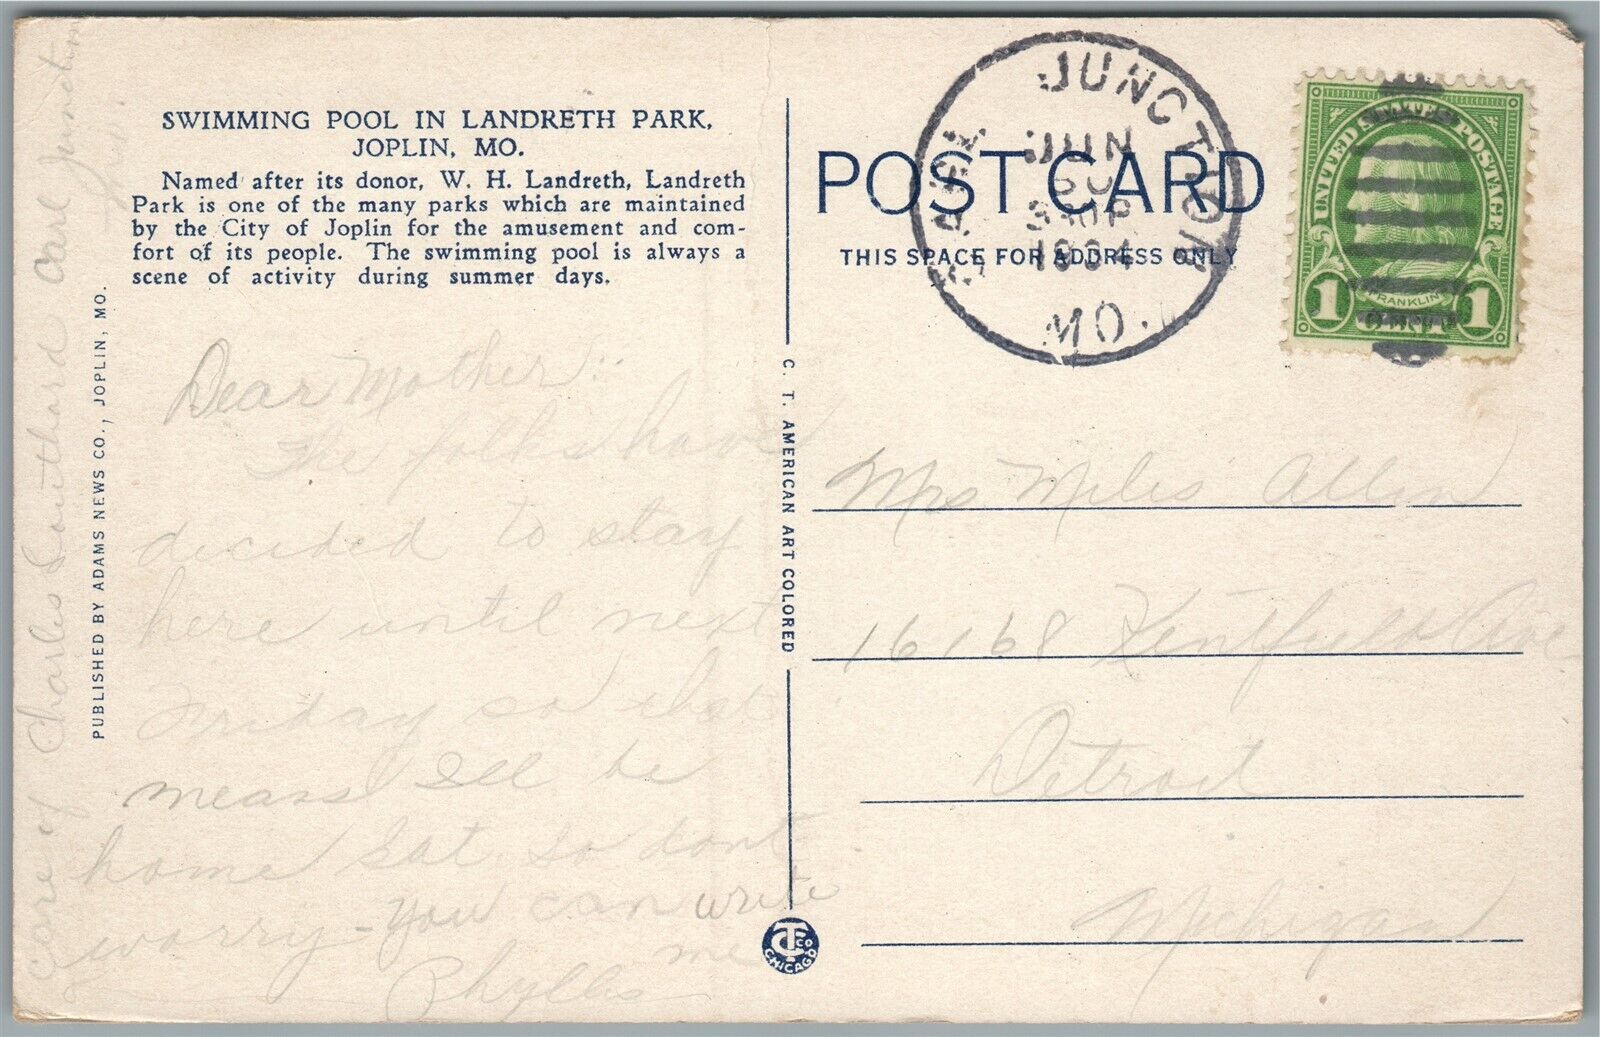 SWIMMING POOL IN LANDRETH PARK,
JOPLIN, MO.
Named after its donor, W. H. Landreth, Landreth
Park is one of the many parks which are maintained
by the City of Joplin for the amusement and com-
fort of its people. The swimming pool is always a
scene of activity during summer days.
Dear Mother:
The folks have
decided to stay
here until next
Friday so that
means I'll be
home Sat so dont
worry - you can write
me
Phyllis
Care of Charles Southard Carl Junction
PUBLISHED BY ADAMS NEWS CO., JOPLIN, MO.
C. T. AMERICAN ART COLORED
CT CO
CHICAGO
POST CARD
THIS SPACE FOR ADDRESS ONLY
CARL JUNCTION
JUN
1934
MO.
UNITED STATES POSTAGE
FRANKLIN
1 1
Mrs Miles Allen
16168 Kentfield Ave
Detroit
Michigan